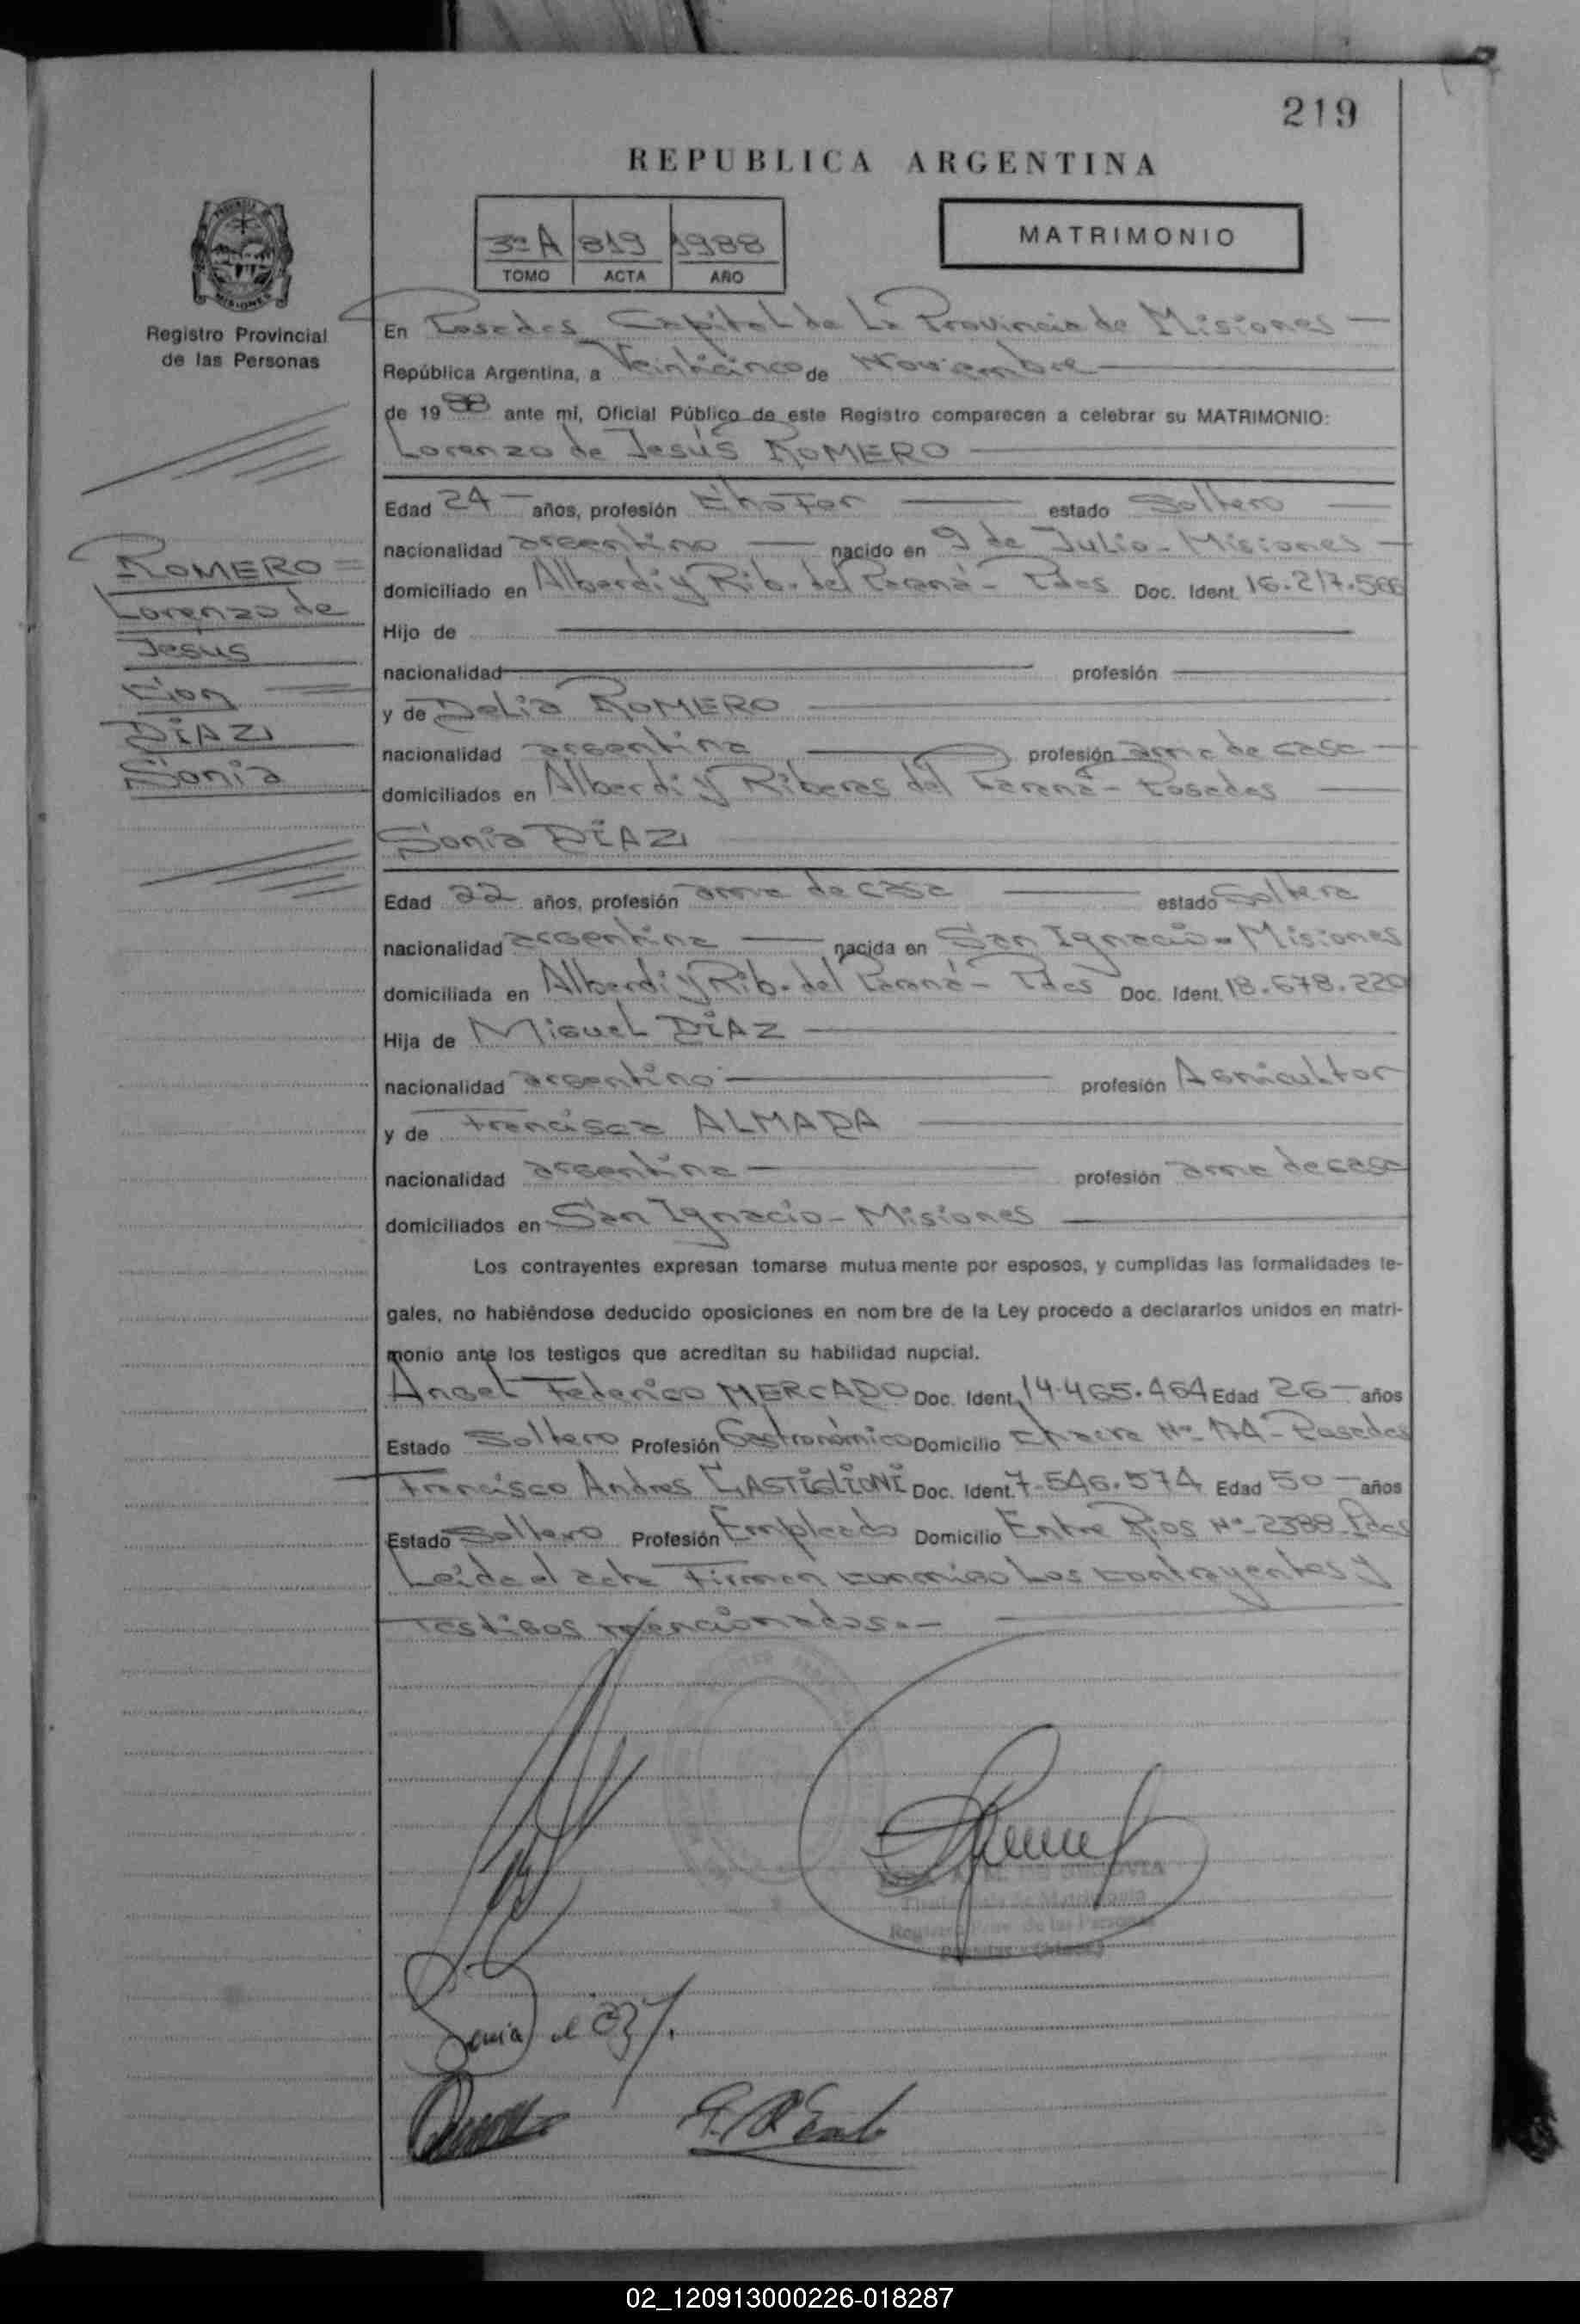 219
REPUBLICA ARGENTINA
3º A 819 1988
TOMO ACTA AÑO
MATRIMONIO
PROVINCIA DE
MISIONES
Registro Provincial
de las Personas
ROMERO =
Lorenzo de
Jesús
con
DÍAZ
Sonia
En Posadas Capital de La Provincia de Misiones —
República Argentina, a Veinticinco de Noviembre
de 1988 ante mí, Oficial Público de este Registro comparecen a celebrar su MATRIMONIO:
Lorenzo de Jesús ROMERO
Edad 24 — años, profesión Chofer — estado Soltero —
nacionalidad argentino — nacido en 9 de Julio - Misiones —
domiciliado en Alberdi y Rib. del Paraná - Pdas Doc. Ident. 16.217.566
Hijo de
nacionalidad profesión
y de Delia ROMERO
nacionalidad argentina — profesión ama de casa —
domiciliados en Alberdi y Riberas del Paraná - Posadas —
Sonia DÍAZ
Edad 22 años, profesión ama de casa — estado Soltera
nacionalidad argentina — nacida en San Ignacio - Misiones
domiciliada en Alberdi y Rib. del Paraná - Pdas Doc. Ident. 18.678.220
Hija de Miguel DÍAZ —
nacionalidad argentino — profesión Agricultor
y de Francisca ALMADA —
nacionalidad argentina — profesión ama de casa
domiciliados en San Ignacio - Misiones —
Los contrayentes expresan tomarse mutuamente por esposos, y cumplidas las formalidades le-
gales, no habiéndose deducido oposiciones en nombre de la Ley procedo a declararlos unidos en matri-
monio ante los testigos que acreditan su habilidad nupcial.
Angel Federico MERCADO Doc. Ident. 14.465.464 Edad 26 — años
Estado Soltero Profesión Gastronómico Domicilio Chacra Nº 174 - Posadas
Francisco Andres CASTIGLIONI Doc. Ident. 7.546.574 Edad 50 — años
Estado Soltero Profesión Empleado Domicilio Entre Rios Nº 2388 - Pdas
Leída el acta Firman conmigo Los contrayentes y
Testigos mencionados.—
Registro Prov. de las Personas
Sonia
02_120913000226-018287